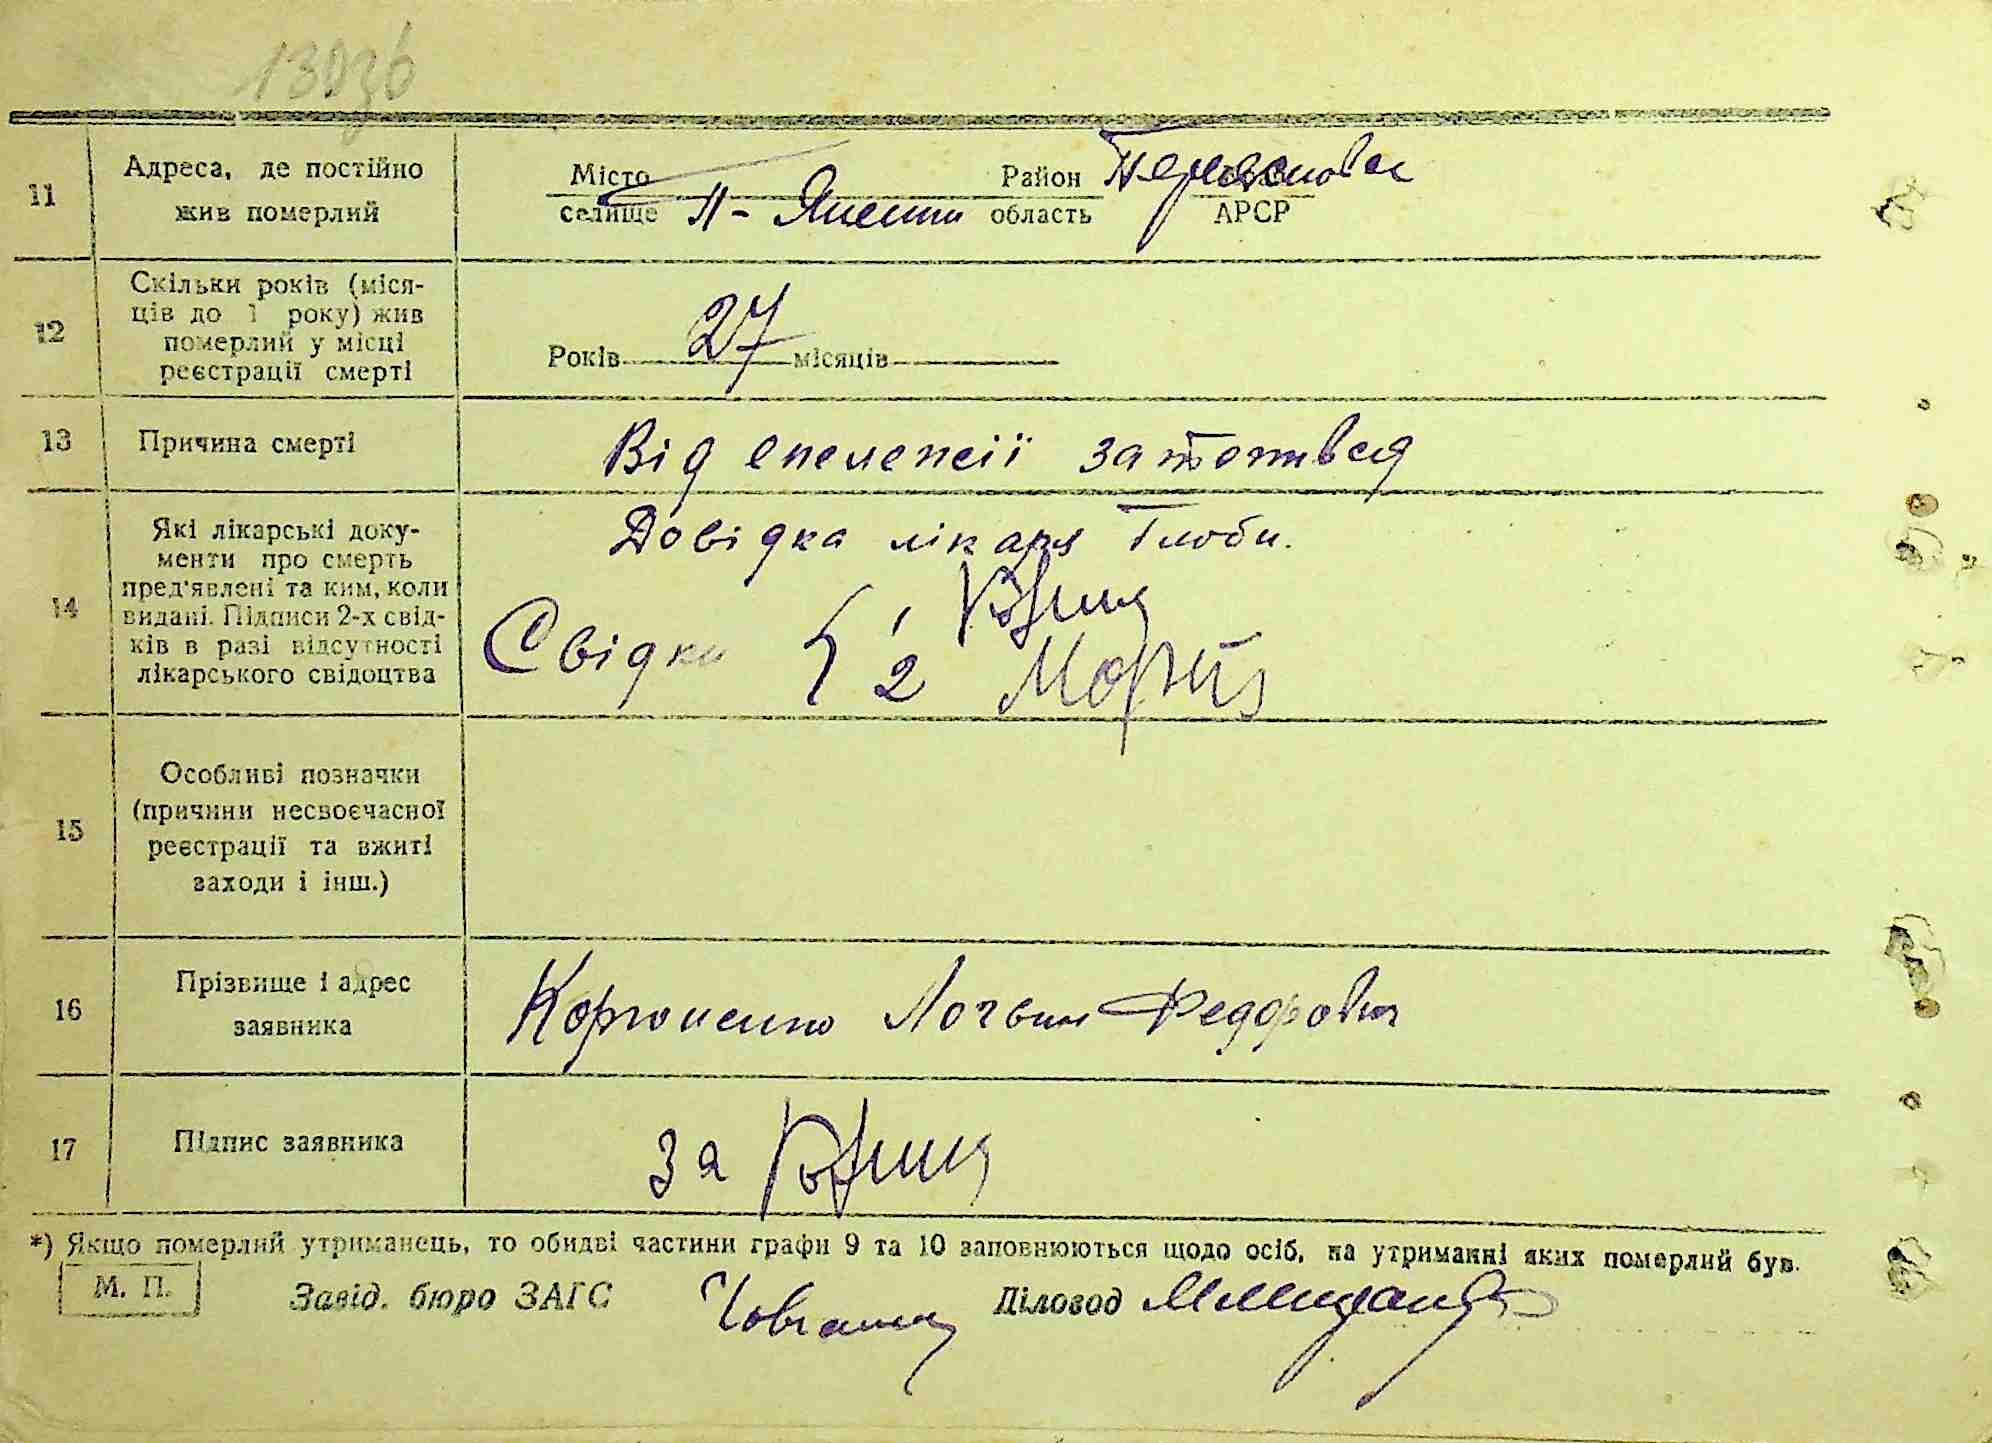 11 Адреса, де постійно
жив померлий
Місто
селище
Район
область
АРСР
12 Скільки років (міся-
ців до 1 року) жив
померлий у місці
реєстрації смерті
Років 27 місяців
13 Причина смерті
Від епелепсії затопився
14 Які лікарські доку-
менти про смерть
пред'явлені та ким, коли
видані. Підписи 2-х свід-
ків в разі відсутності
лікарського свідоцтва
Довідка лікаря Глоби.
Свідки 1
2
15 Особливі позначки
(причини несвоєчасної
реєстрації та вжиті
заходи і інш.)
16 Прізвище і адрес
заявника
Логвин Федорович
17 Підпис заявника
За
*) Якщо померлий утриманець, то обидві частини графи 9 та 10 заповнюються щодо осіб, на утриманні яких померлий був.
М. П.
Завід. бюро ЗАГС
Діловод